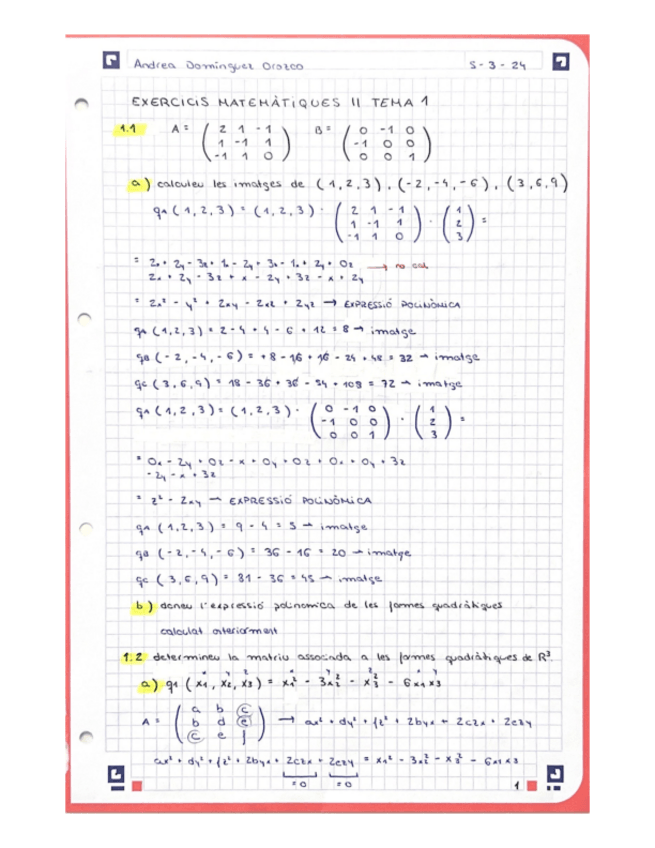 Andrea Domínguez Orozco 5-3-24
EXERCICIS MATEMÀTIQUES II TEMA 1
1.1 A = ( 2 1 -1 B = ( 0 -1 0
1 -1 1 -1 0 0
-1 1 0 ) 0 0 1 )
a) calculeu les imatges de (1,2,3), (-2,-4,-6), (3,6,9)
qA (1,2,3) = (1,2,3) · ( 2 1 -1 · ( 1 =
1 -1 1 2
-1 1 0 ) 3 )
= 2x + 2y - 3z + 1x - 2y + 3z - 1x + 2y + 0z → no cal
2x + 2y - 3z + x - 2y + 3z - x + 2y
= 2x² - y² + 2xy - 2xz + 2yz → EXPRESSIÓ POLINÒMICA
qA (1,2,3) = 2 - 4 + 4 - 6 + 12 = 8 → imatge
qB (-2,-4,-6) = +8 - 16 + 16 - 24 + 48 = 32 → imatge
qC (3,6,9) = 18 - 36 + 36 - 54 + 108 = 72 → imatge
qA (1,2,3) = (1,2,3) · ( 0 -1 0 · ( 1 =
-1 0 0 2
0 0 1 ) 3 )
= 0x - 2y + 0z - x + 0y + 0z + 0x + 0y + 3z
-2y - x + 3z
= z² - 2xy → EXPRESSIÓ POLINÒMICA
qA (1,2,3) = 9 - 4 = 5 → imatge
qB (-2,-4,-6) = 36 - 16 = 20 → imatge
qC (3,6,9) = 81 - 36 = 45 → imatge
b) doneu l'expressió polinomica de les formes quadràtiques
calculat anteriorment
1.2 determineu la matriu associada a les formes quadràtiques de R³.
x y z x y z x y
a) q1 (x1, x2, x3) = x1² - 3x2² - x3² - 6x1x3
A = ( a b c → ax² + dy² + fz² + 2byx + 2czx + 2ezy
b d e
c e f )
ax² + dy² + fz² + 2byx + 2czx + 2ezy = x1² - 3x2² - x3² - 6x1x3
=0 =0
1